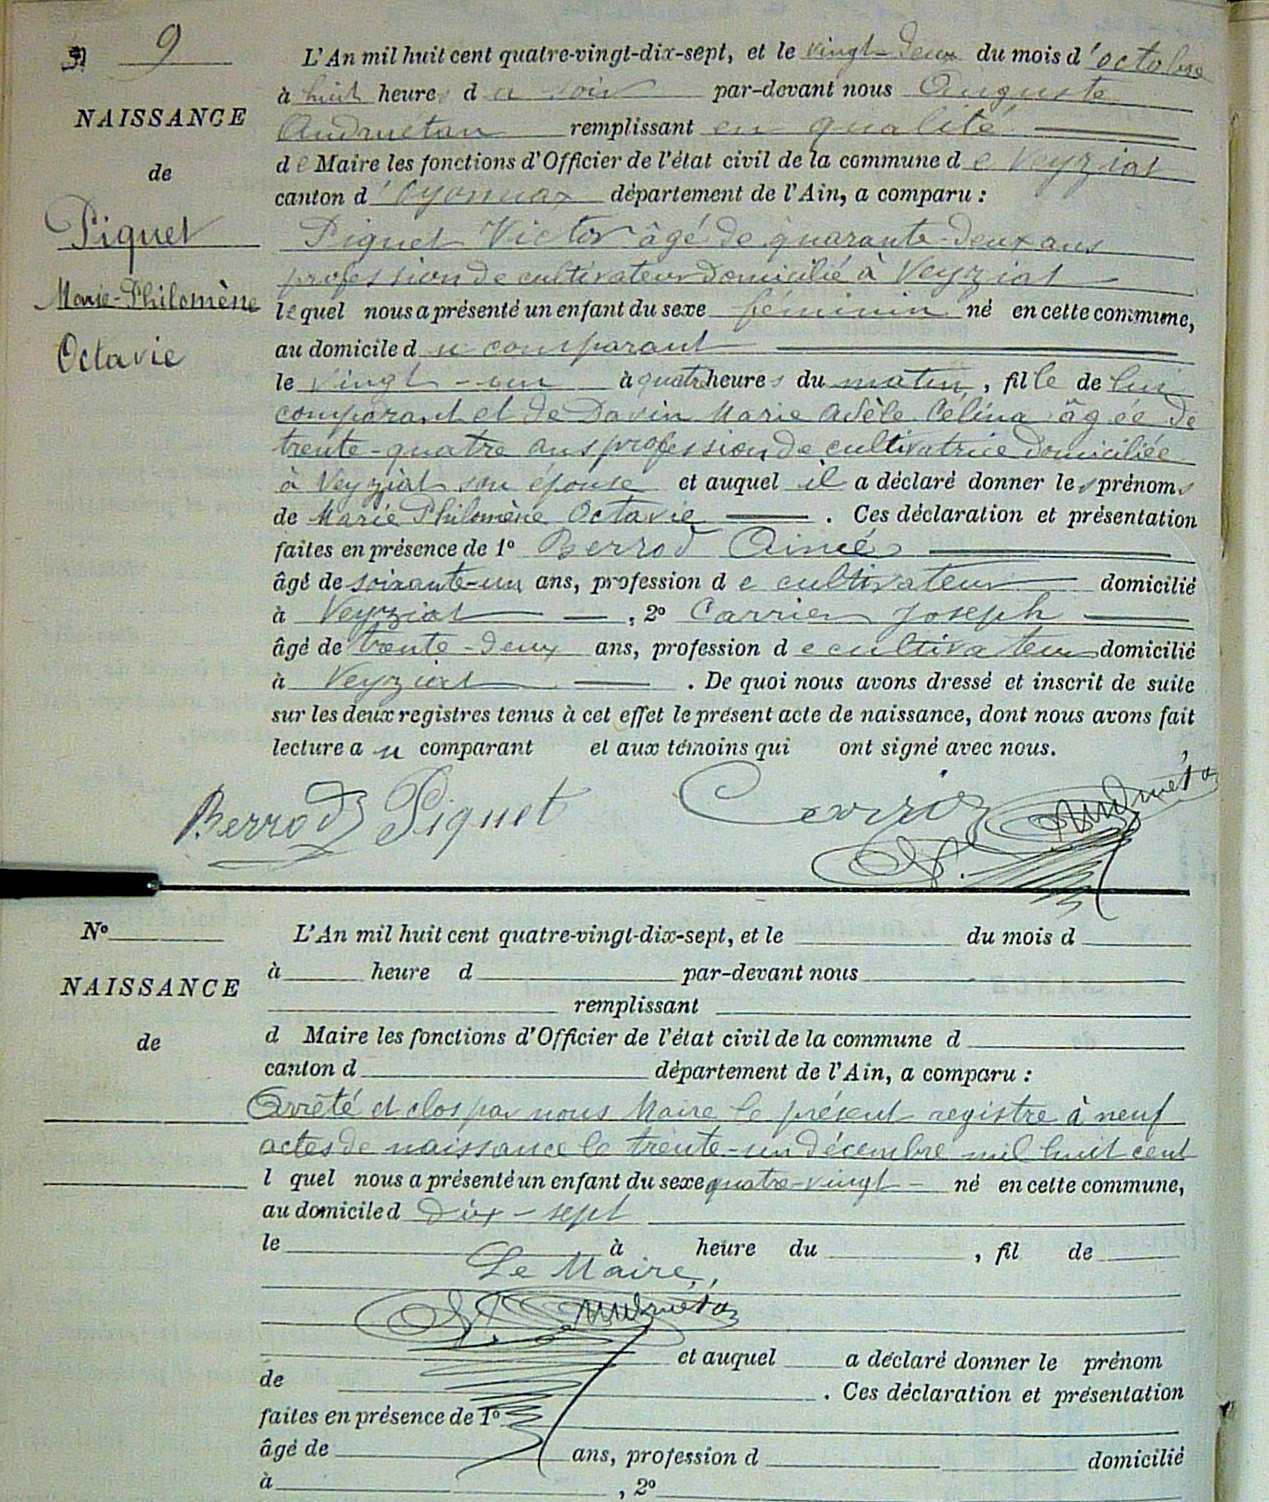 N° 9
NAISSANCE
de
Piquet
Marie-Philomène
Octavie
L'An mil huit cent quatre-vingt-dix-sept, et le vingt-deux du mois d'octobre
à huit heures du soir par-devant nous Auguste
Andruétan remplissant en qualité
de Maire les fonctions d'Officier de l'état civil de la commune de Veyziat
canton d'Oyonnax département de l'Ain, a comparu :
Piquet Victor âgé de quarante-deux ans
profession de cultivateur domicilié à Veyziat
lequel nous a présenté un enfant du sexe féminin né en cette commune,
au domicile du comparant
le vingt-un à quatre heures du matin, fille de lui
comparant et de Davin Marie Adèle Célina âgée de
trente-quatre ans profession de cultivatrice domiciliée
à Veyziat son épouse et auquel il a déclaré donner les prénoms
de Marie Philomène Octavie. Ces déclaration et présentation
faites en présence de 1° Berrod Aimé
âgé de soixante-un ans, profession de cultivateur domicilié
à Veyziat, 2° Carrier Joseph
âgé de trente-deux ans, profession de cultivateur domicilié
à Veyziat. De quoi nous avons dressé et inscrit de suite
sur les deux registres tenus à cet effet le présent acte de naissance, dont nous avons fait
lecture au comparant et aux témoins qui ont signé avec nous.
Berrod Piquet Carrier Andruétan
N°
NAISSANCE
de
L'An mil huit cent quatre-vingt-dix-sept, et le du mois d
à heure d par-devant nous
remplissant
d Maire les fonctions d'Officier de l'état civil de la commune d
canton d département de l'Ain, a comparu :
Arrêté et clos par nous Maire le présent registre à neuf
actes de naissance le trente-un décembre mil huit cent
l quel nous a présenté un enfant du sexe quatre-vingt- né en cette commune,
au domicile d dix-sept
le à heure du , fil de
Le Maire,
Andruétan
et auquel a déclaré donner le prénom
de . Ces déclaration et présentation
faites en présence de 1°
âgé de ans, profession d domicilié
à , 2°